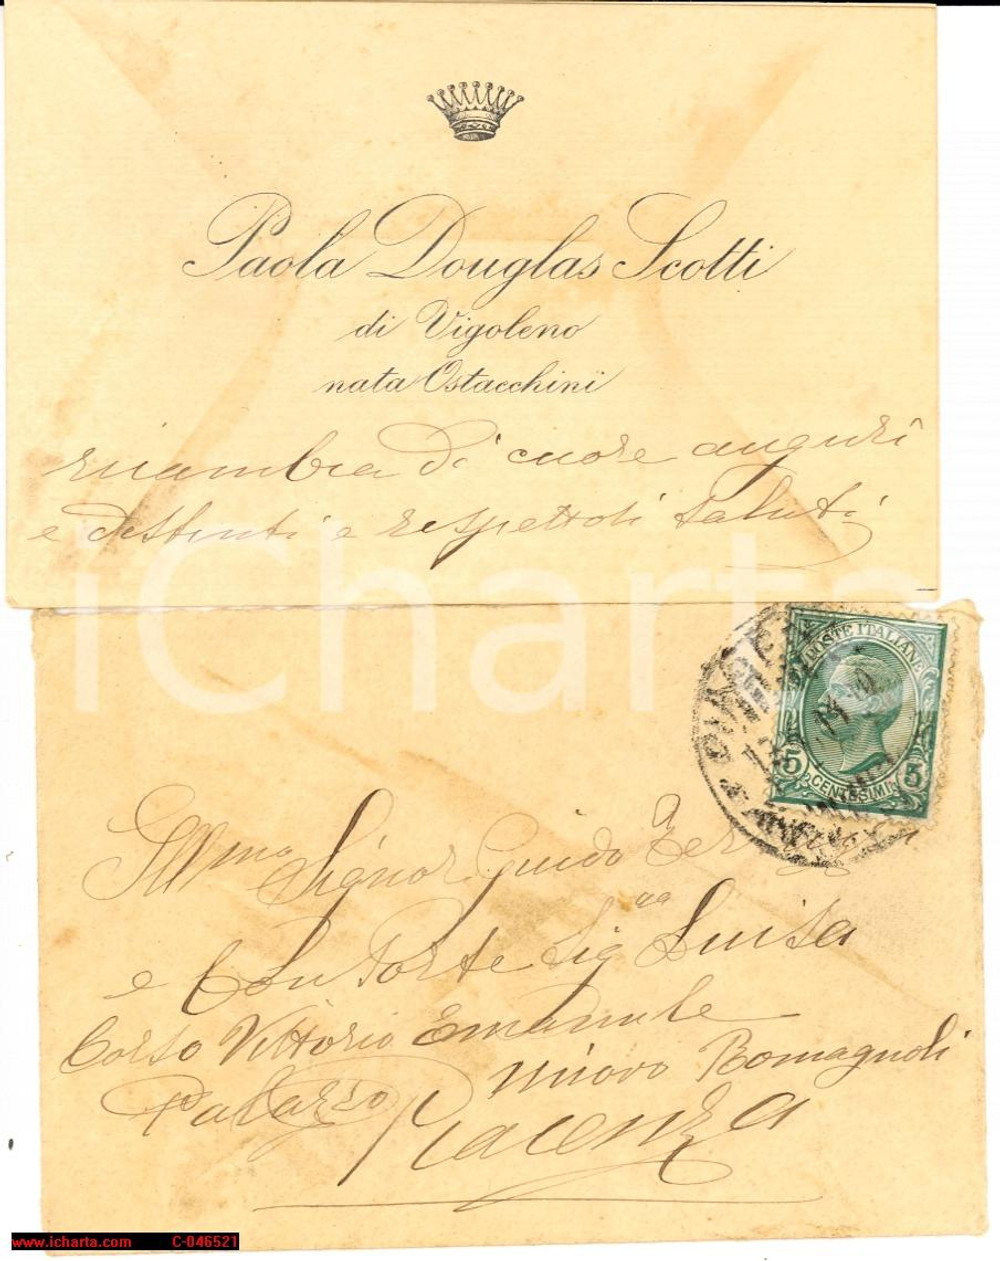 Paola Douglas Scotti
di Vigoleno
nata Ostacchini
ricambia di cuore auguri
e distinti e rispettosi saluti
iCharta
POSTE ITALIANE
5 5
CENTESIMI
Ill.mo Signor Guido
e Consorte Sig.ra Luisa
Corso Vittorio Emanuele
Palazzo nuovo Romagnoli
Piacenza
www.icharta.com C-046521